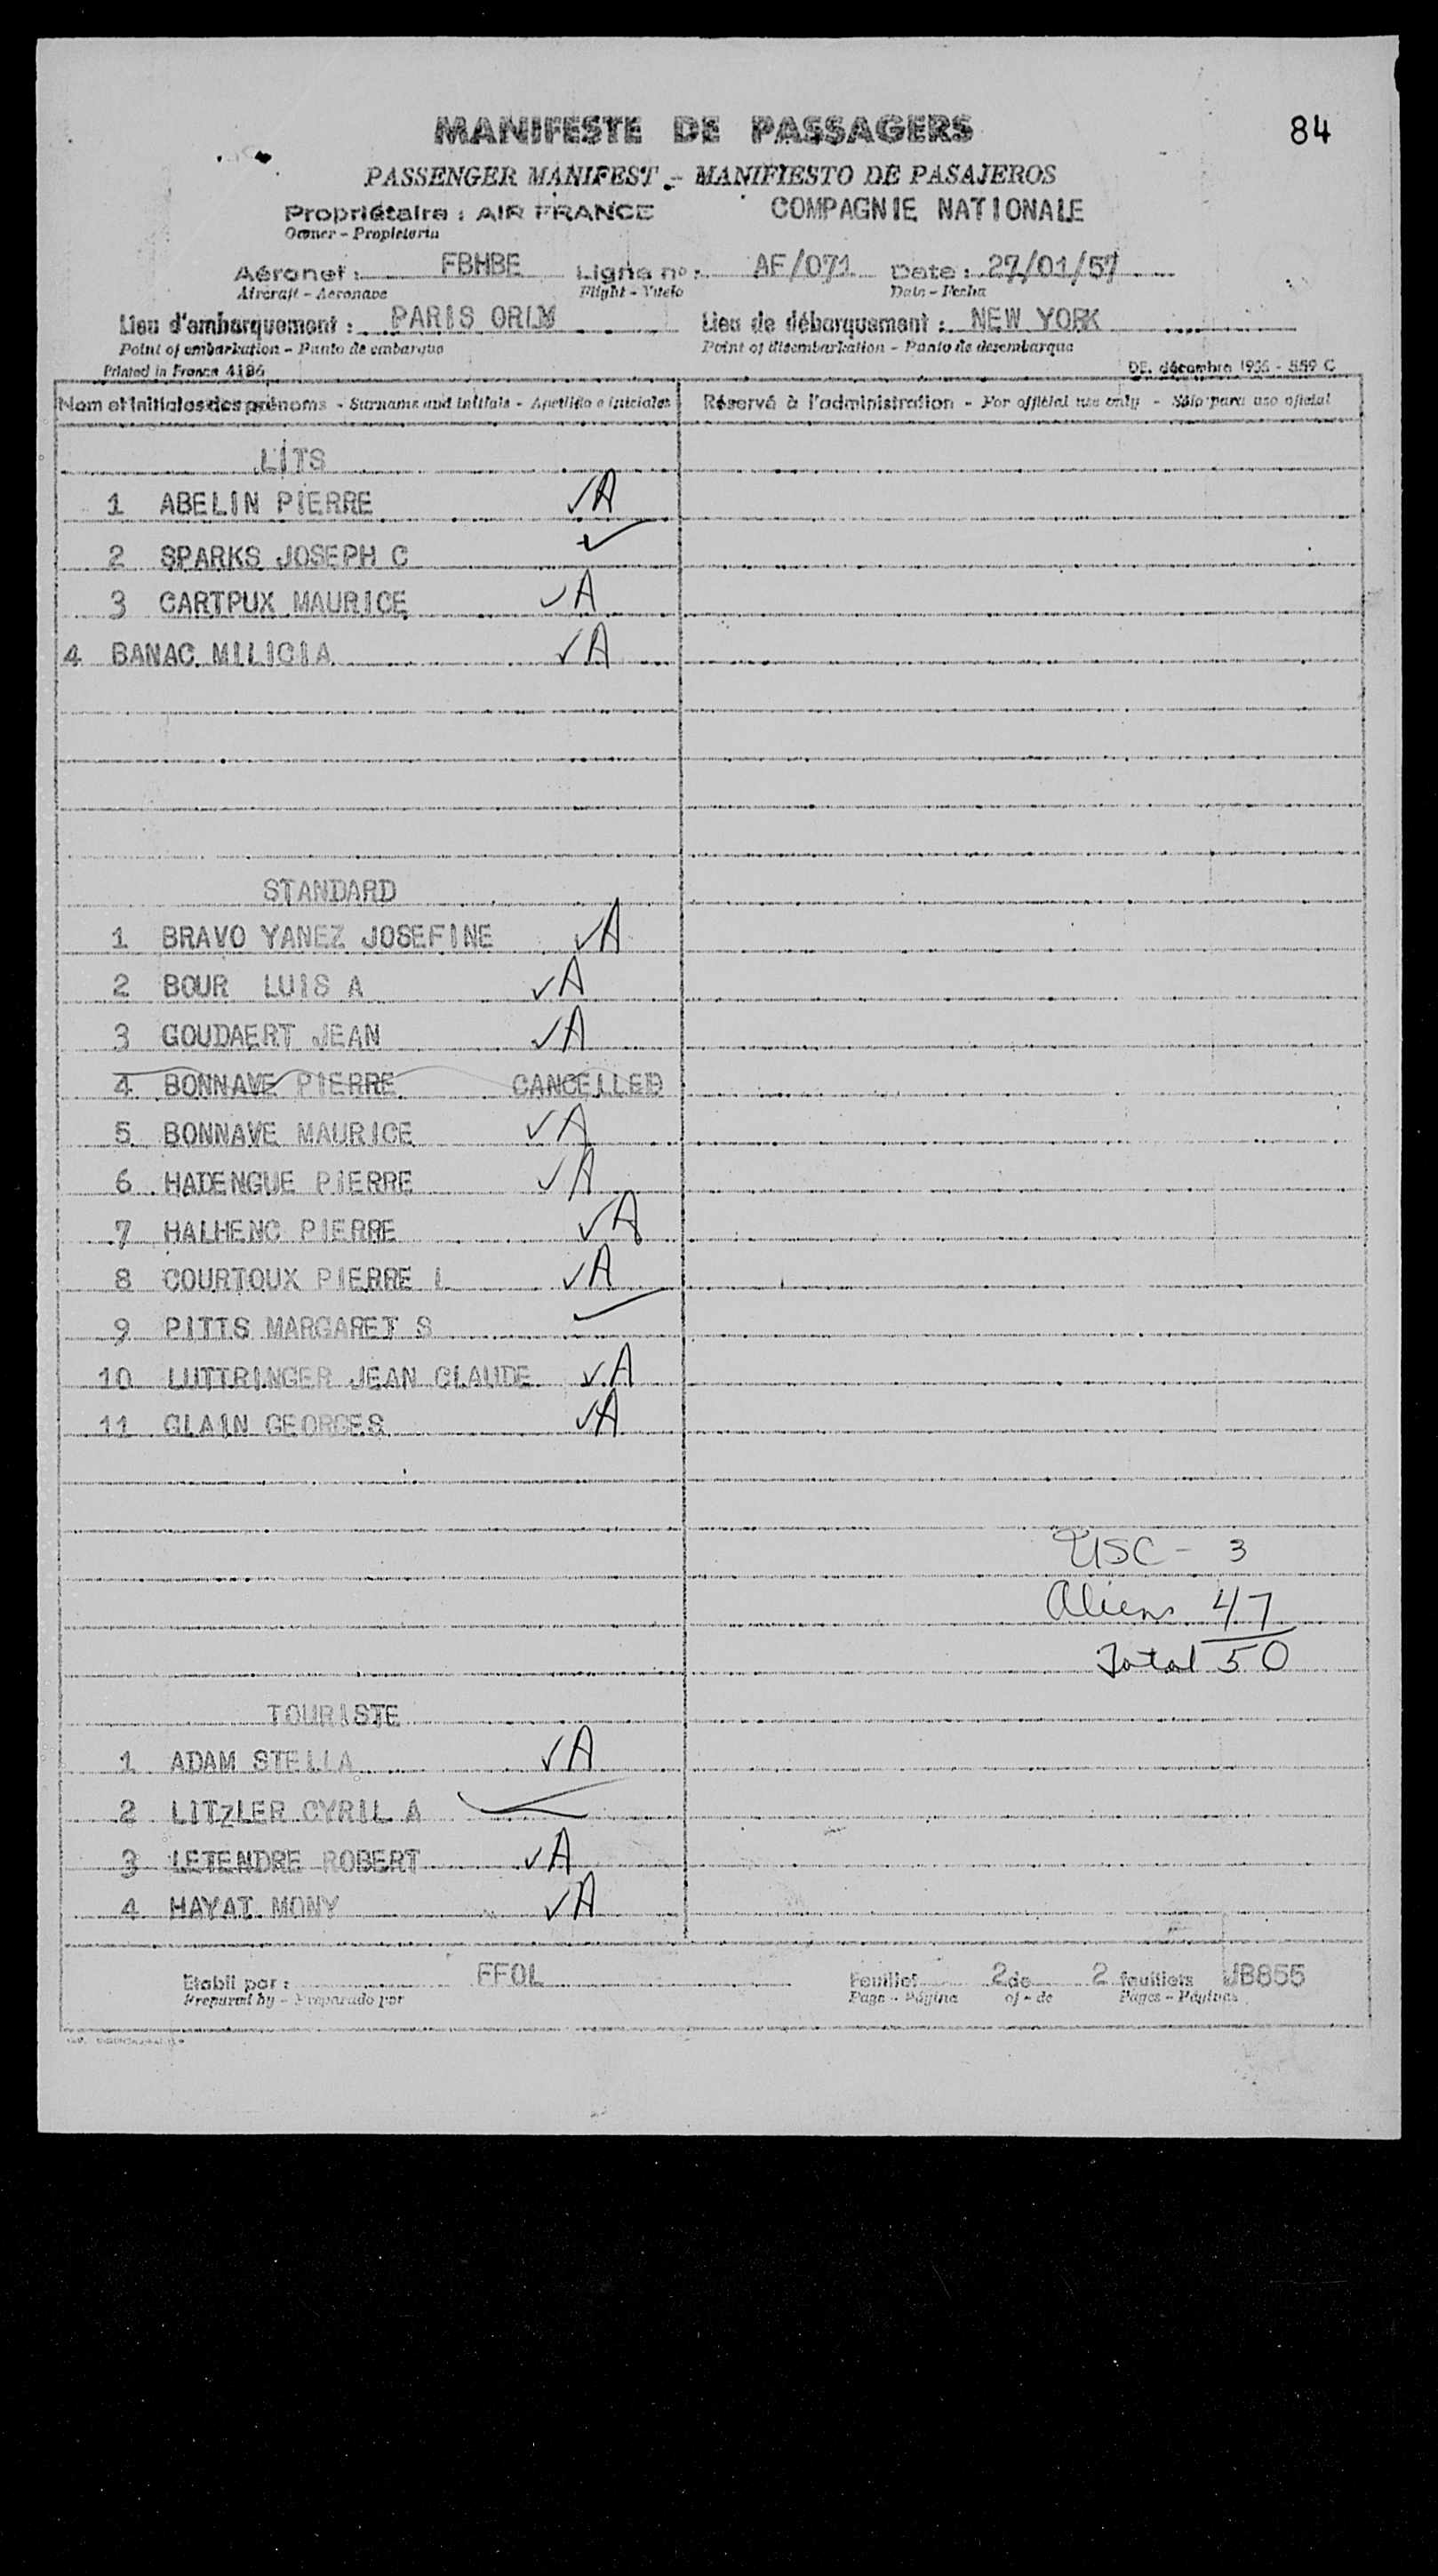 MANIFESTE DE PASSAGERS
84
PASSENGER MANIFEST - MANIFIESTO DE PASAJEROS
Propriétaire : AIR FRANCE COMPAGNIE NATIONALE
Owner - Propietario
Aéronef : FBHBE Ligne nº : AF/071 Date : 27/01/57
Aircraft - Aeronave Flight - Vuelo Date - Fecha
Lieu d'embarquement : PARIS ORLY Lieu de débarquement : NEW YORK
Point of embarkation - Punto de embarque Point of disembarkation - Punto de desembarque
Printed in France 4186 DE. décembre 1955 - 559 C
Nom et initiales des prénoms - Surname and initials - Apellido e iniciales Réservé à l'administration - For official use only - Sólo para uso oficial
LITS
1 ABELIN PIERRE ✓A
2 SPARKS JOSEPH C ✓
3 CARTPUX MAURICE ✓A
4 BANAC MILICIA ✓A
STANDARD
1 BRAVO YANEZ JOSEFINE ✓A
2 BOUR LUIS A ✓A
3 GOUDAERT JEAN ✓A
4 BONNAVE PIERRE CANCELLED
5 BONNAVE MAURICE ✓A
6 HADENGUE PIERRE ✓A
7 HALHENC PIERRE ✓A
8 COURTOUX PIERRE L ✓A
9 PITTS MARGARET S ✓
10 LUTTRINGER JEAN CLAUDE ✓A
11 GLAIN GEORGES ✓A
USC - 3
Aliens 47
Total 50
TOURISTE
1 ADAM STELLA ✓A
2 LITZLER CYRIL A ✓
3 LETENDRE ROBERT ✓A
4 HAYAT MONY ✓A
Etabli par : FFOL Feuillet 2 de 2 feuillets JB855
Prepared by - Preparado por Page - Página of - de Pages - Páginas